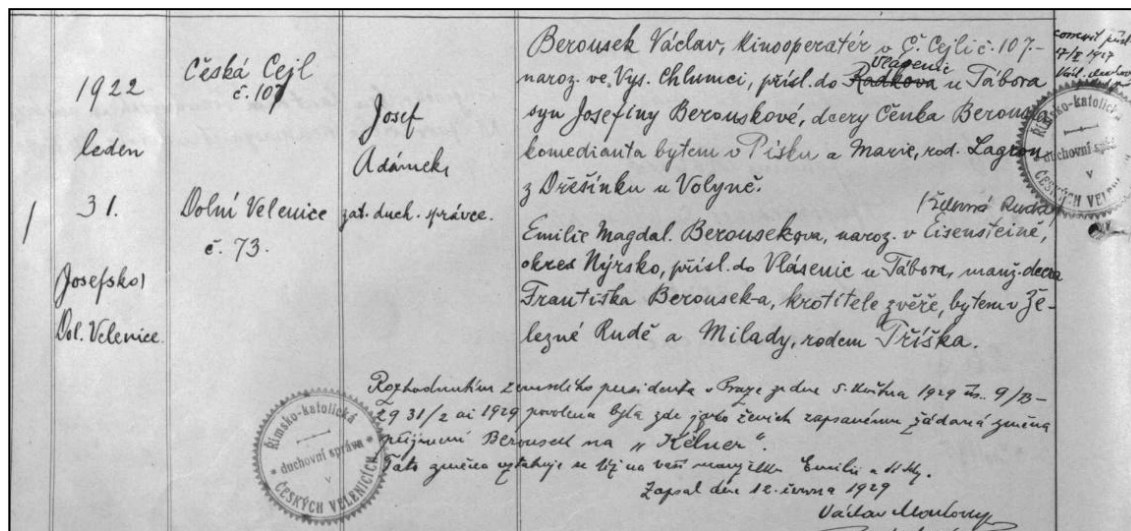 1
1922
leden
31.
Josefsko
Dol. Velenice.
Česká Cejl
č. 107
Dolní Velenice
č. 73.
Josef
Adámek,
zat. duch. správce.
Berousek Václav, Kinooperatér v Č. Cejli č. 107.-
Vlásenic
naroz. ve Vys. Chlumci, přísl. do Radkova u Tábora
syn Josefiny Berouskové, dcery Čeňka Berouska
komedianta bytem v Písku a Marie, rod. Lagron
z Dřešínku u Volyně.
(Železná Ruda)
Emilie Magdal. Berousekova, naroz. v Eisensteině,
okres Nýrsko, přísl. do Vlásenic u Tábora, manž. dcera
Františka Berousek-a, krotitele zvěře, bytem v Že-
lezné Rudě a Milady, rodem Tříška.
Rozhodnutím zemského presidenta v Praze ze dne 5. května 1929 9/B-
29 31/2 ai 1929 povolena byla zde jako ženich zapsanému žádaná změna
příjmení Berousek na „Kélner".
Tato změna vztahuje se též na manželku Emilii
Zapsal dne 12. června 1929
Václav
Římsko-katolická
duchovní správa
v
ČESKÝCH VELENICÍCH
Římsko-katolická
duchovní správa
v
ČESKÝCH VELENICÍCH
1927